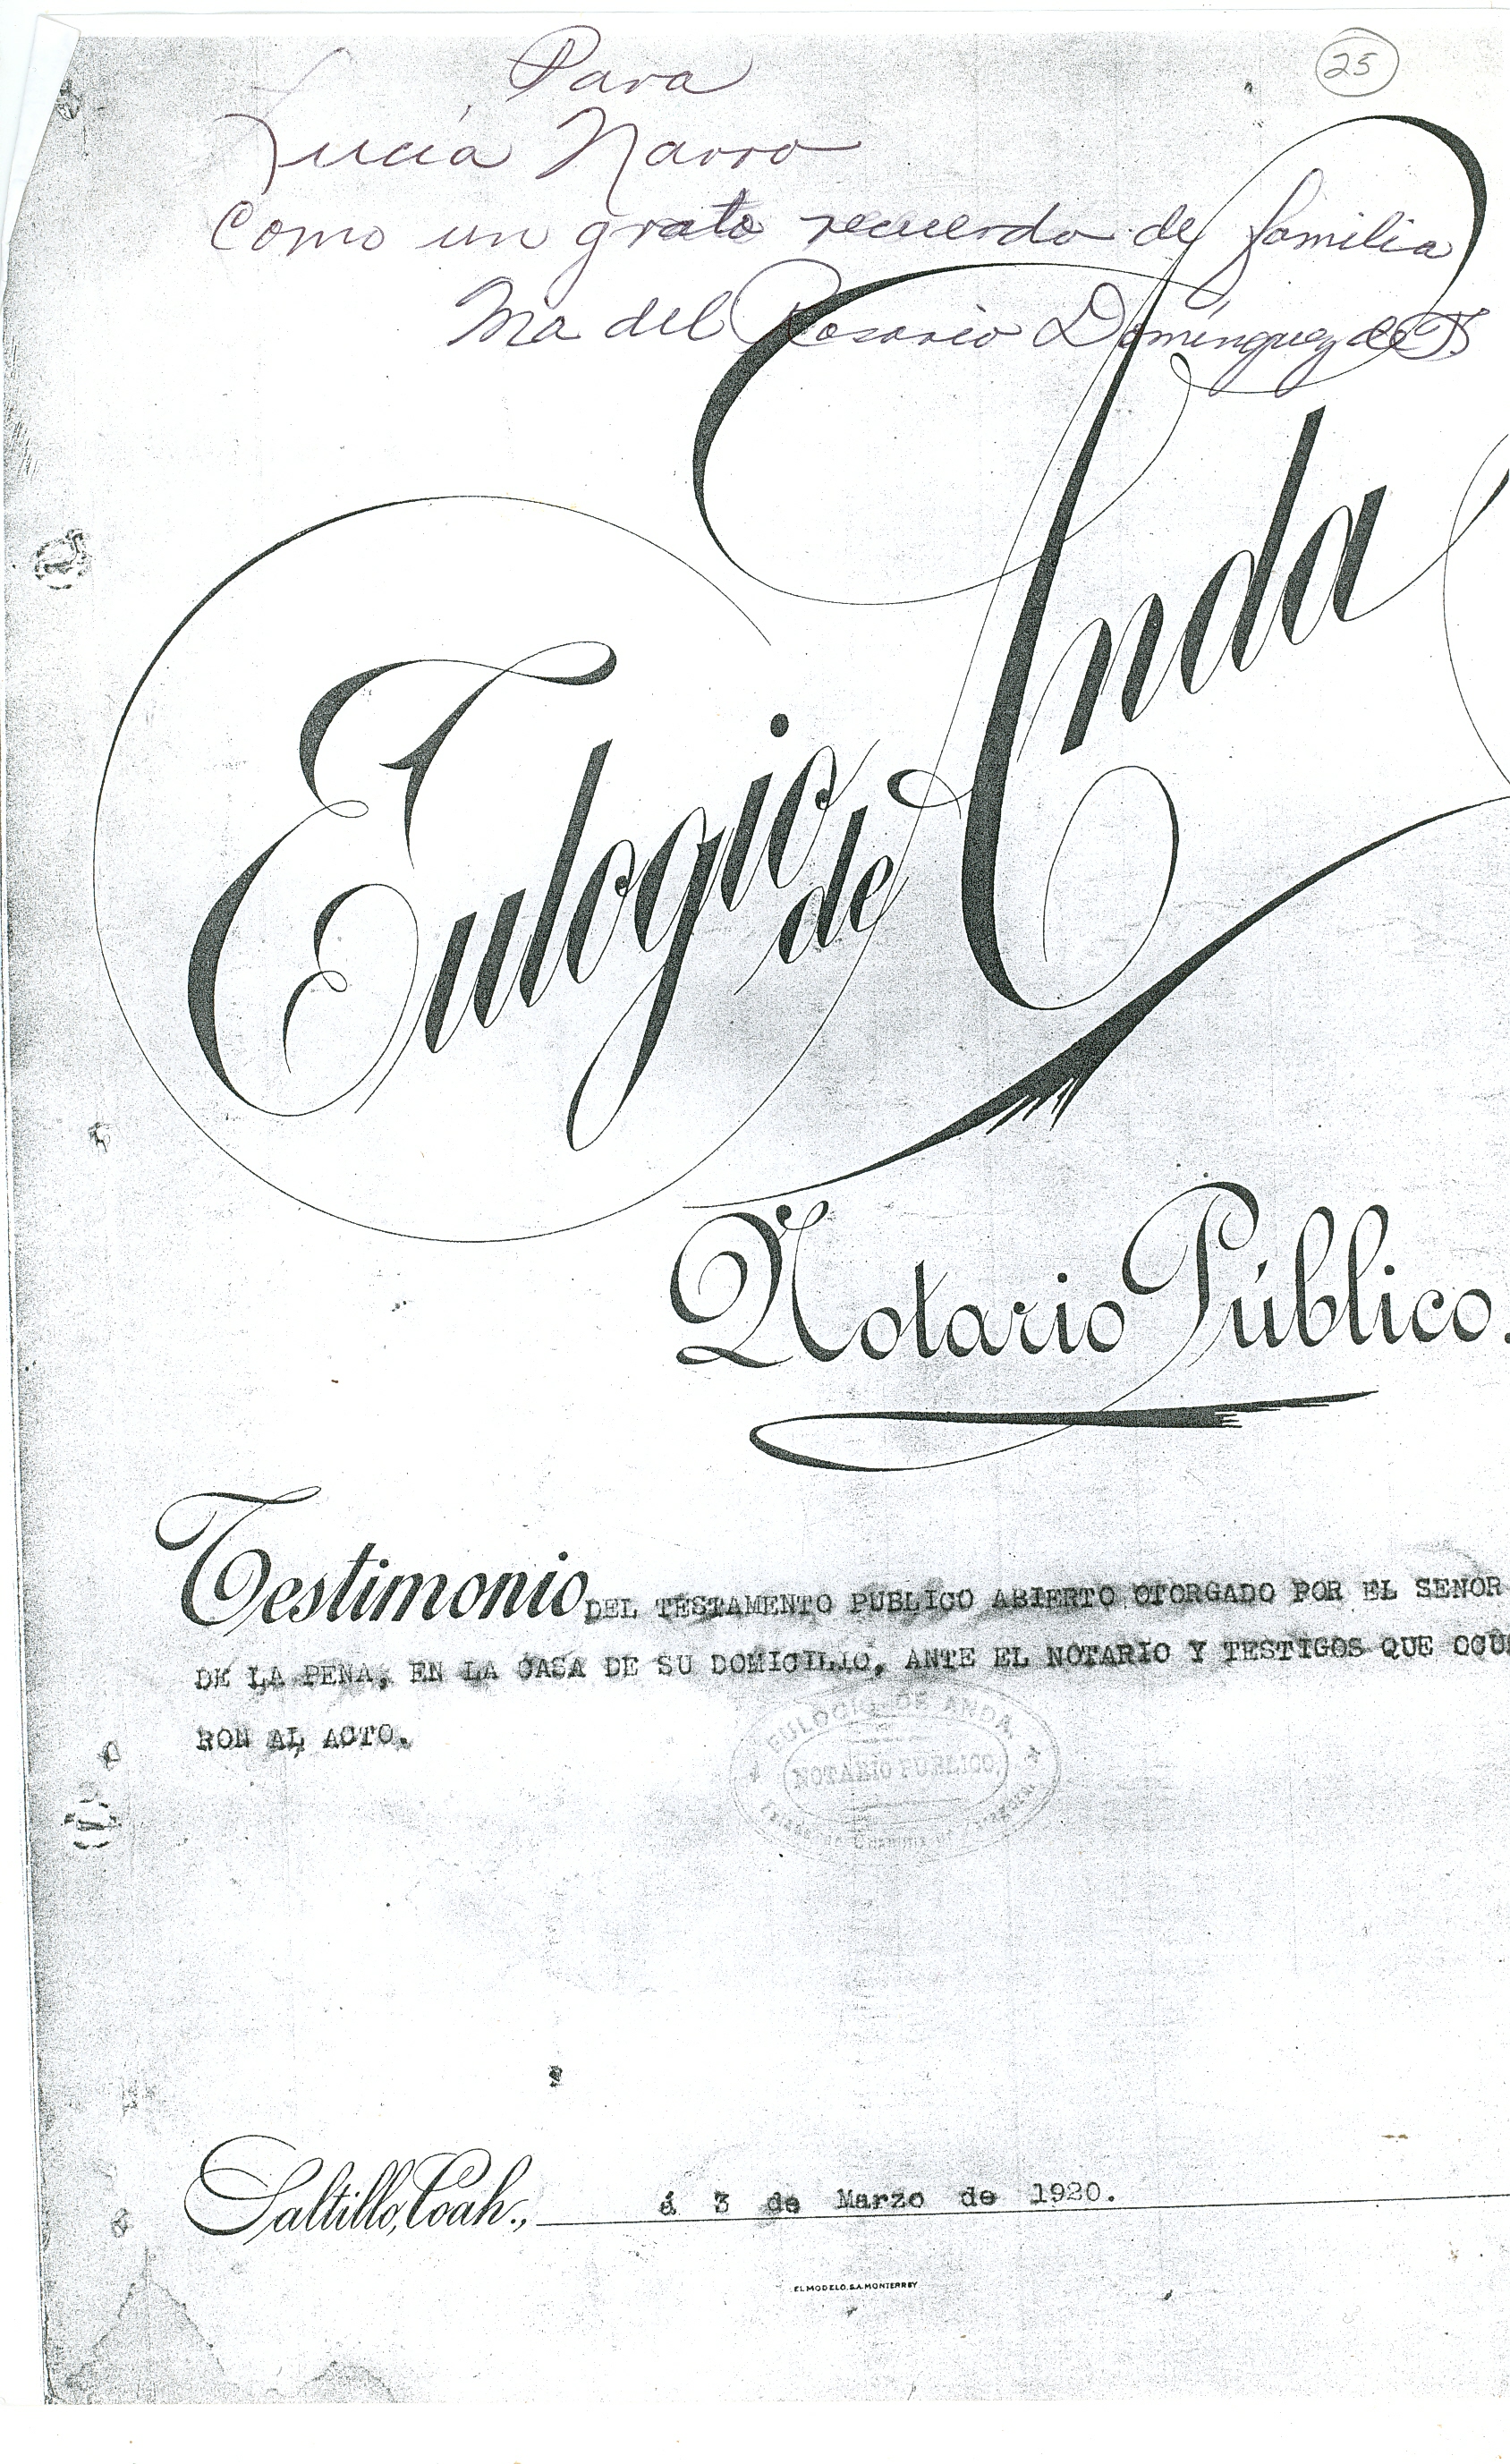 25
Para
Lucía Narro
Como un grato recuerdo de familia
Ma del Rosario Domínguez de
Eulogio
de
Anda
Notario Público.
Testimonio DEL TESTAMENTO PUBLICO ABIERTO OTORGADO POR EL SENOR
DE LA PENA, EN LA CASA DE SU DOMICILIO, ANTE EL NOTARIO Y TESTIGOS QUE OCU
RON AL ACTO.
EULOGIO DE ANDA.
NOTARIO PUBLICO.
Saltillo, Coah., á 3 de Marzo de 1920.
EL MODELO, S.A. MONTERREY